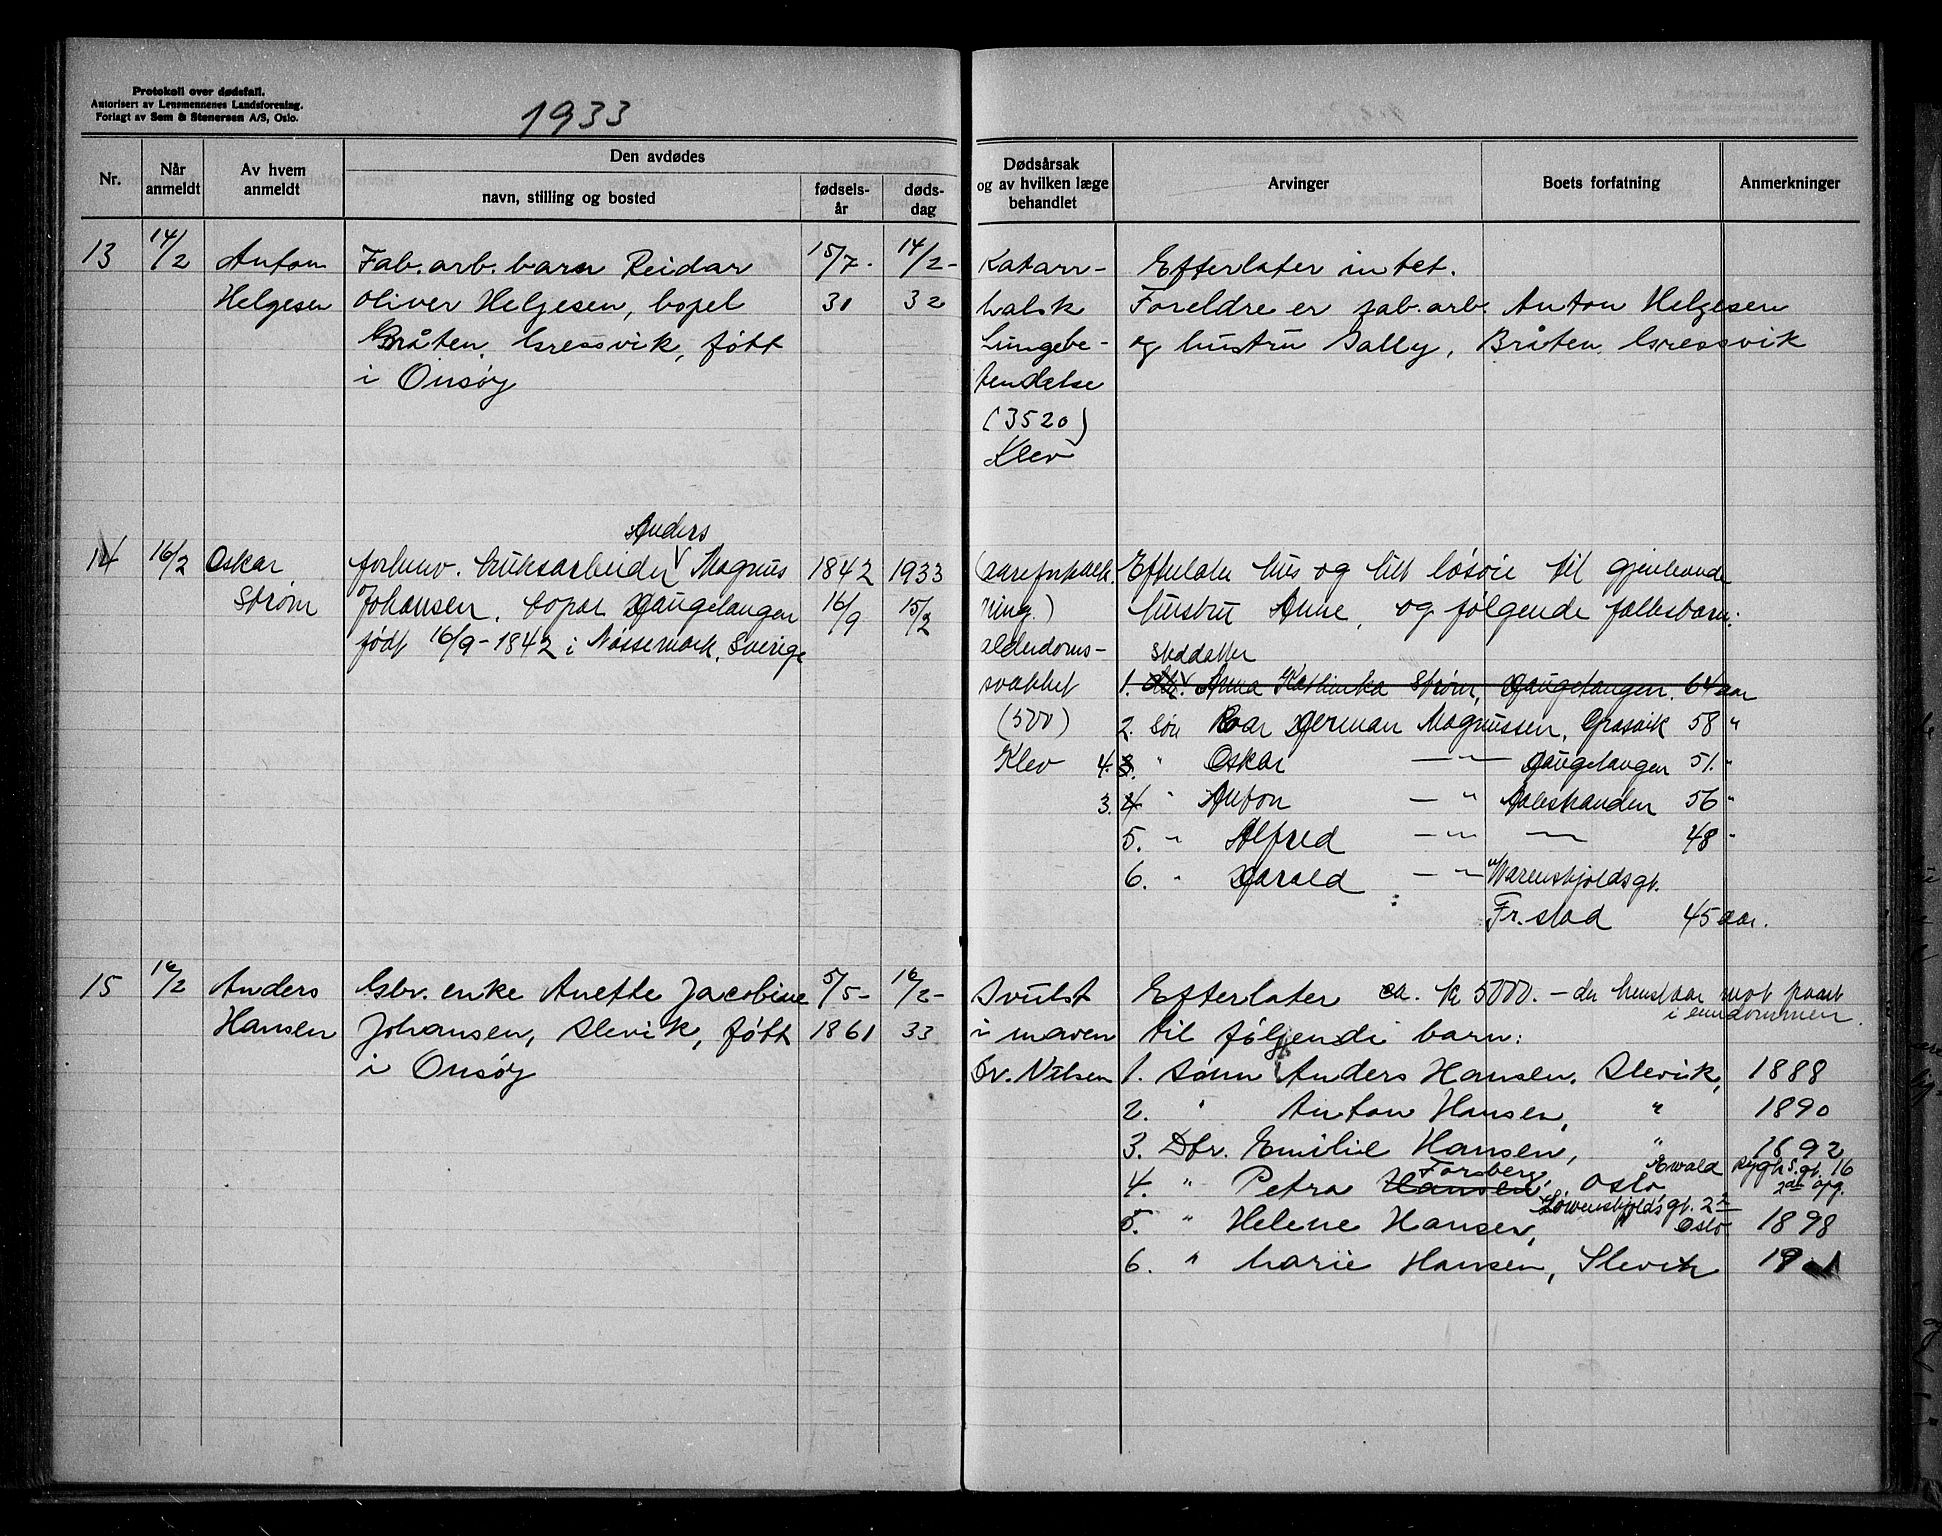 Protokoll over dødsfall.
Autorisert av Lensmennenes Landsforening.
Forlagt av Sem & Stenersen A/S, Oslo.
1933
Nr.
Når anmeldt
Av hvem anmeldt
Den avdødes
navn, stilling og bosted
fødsels-år
døds-dag
Dødsårsak og av hvilken læge behandlet
Arvinger
Boets forfatning
Anmerkninger
13 14/2 Anton Fab.arb. barn Reidar 15/7- 14/2- Katarr- Efterlater intet.
Helgesen Oliver Helgesen, bopel 31 32 halsk Foreldre er fab.arb. Anton Helgesen
Bråten, Gressvik, født Lungebe- og hustru Sally, Bråten, Gressvik
i Onsøy tendelse
(3520)
Klev
Anders
14 16/2 Oskar forhenv. bruksarbeider Magnus 1842 1933 (aareforkalk- Efterlater hus og litt løsøie til gjenlevende
Strøm Johansen, bopæl Haugetangen 16/9 15/2 ning.) hustru Anne, og følgende fællesbarn:
født 16/9-1842 i Nössemark, Sverige alderdoms- steddatter
svakhet 1. Anna Kathinka Strøm, Haugetangen, 64 aar
(500) 2. Søn Roar Herman Magnussen, Græsvik 58 "
Klev 4. 3. " Oskar — " — Haugetangen 51. "
3. 4. " Anton — " Aalestranden 56 "
5. " Alfred — " — — " — 48 "
6. " Harald — " — Warenskjoldsgt.
Fr.stad 45 aar.
15 16/2 Anders Gbr. enke Anette Jacobine 5/5- 16/2- Svulst Efterlater ca. kr 5000.- der henstaar mot pant
i eiendommen.
Hansen Johansen, Slevik, født 1861 33 i maven til følgende barn:
i Onsøy Dr. Nilsen 1. Sønn Anders Hansen, Slevik, 1888
2. " Anton Hansen, " 1890
3. Dtr. Emilie Hansen, " 1892
Forsberg, Ewald Rygh s. gt. 16
4. " Petra Hansen, Oslo 2den opg.
Løvenskjolds gt. 22
5. " Helene Hansen, Oslo 1898
6. " Marie Hansen, Slevik